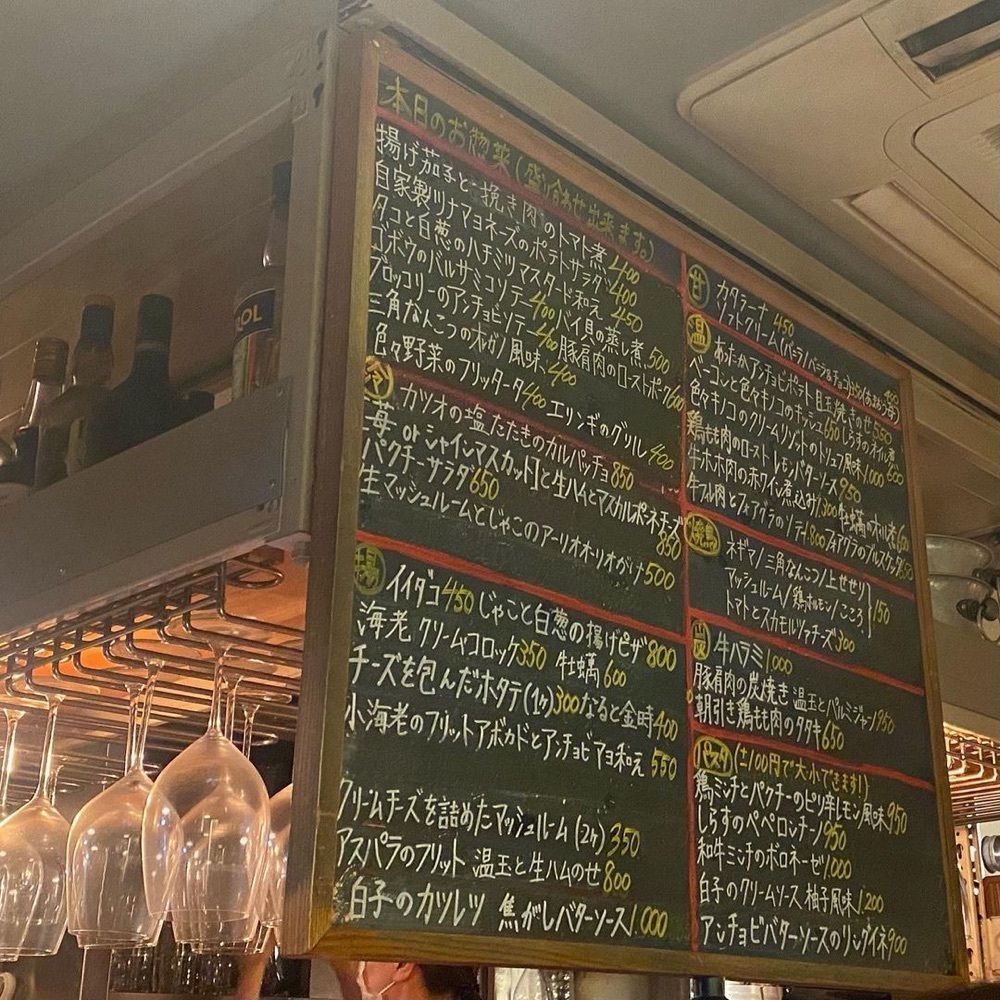 本日のお惣菜(盛り合わせ出来ます。)
揚げ茄子と挽き肉のトマト煮 400
自家製ツナマヨネーズのポテトサラダ 400
タコと白葱のハチミツマスタード和え 450
ゴボウのバルサミコソテー 400 バイ貝の蒸し煮 500
ブロッコリーのアンチョビソテー 400 豚肩肉のローストポーク 600
三角なんこつのオレガノ風味 400
色々野菜のフリッタータ 400 エリンギのグリル 400
冷 カツオの塩たたきのカルパッチョ 850
苺 or シャインマスカットと生ハムとマスカルポーネチーズ 850
パクチーサラダ 650
生マッシュルームとじゃこのアーリオオーリオがけ 500
揚 イイダコ 450 じゃこと白葱の揚げピザ 800
海老クリームコロッケ 350 牡蠣 600
チーズを包んだホタテ(1ヶ) 300 なると金時 400
小海老のフリットアボカドとアンチョビマヨ和え 550
クリームチーズを詰めたマッシュルーム(2ヶ) 350
アスパラのフリット 温玉と生ハムのせ 800
白子のカツレツ 焦がしバターソース 1.000
甘 カタラーナ 450
ソフトクリーム(バニラ/バニラ&チョコ)
温 あったかアンチョビポテト 目玉焼きのせ 550
ベーコンと色々キノコのキッシュ 650 しらすのオイル煮 600
色々キノコのクリームリゾットのトリュフ風味 1.000
鶏もも肉のロースト レモンバターソース 950
牛ホホ肉の赤ワイン煮込み 1.300 牡蠣のオイル煮 600
牛フィレ肉とフォアグラのソテー 1.800 フォアグラのブルスケッタ
焼鳥 ネギマ/三角なんこつ/上せせり
マッシュルーム/鶏ホルモン/こころ 150
トマトとスカモルツァチーズ 300
炭 牛ハラミ 1.000
豚肩肉の炭焼き 温玉とパルミジャーノ 950
朝引き鶏もも肉のタタキ 650
パスタ (±100円で大小できます!)
鶏ミンチとパクチーのピリ辛レモン風味 950
しらすのペペロンチーノ 950
和牛ミンチのボロネーゼ 1.000
白子のクリームソース 柚子風味 1.200
アンチョビバターソースのリングイネ 900